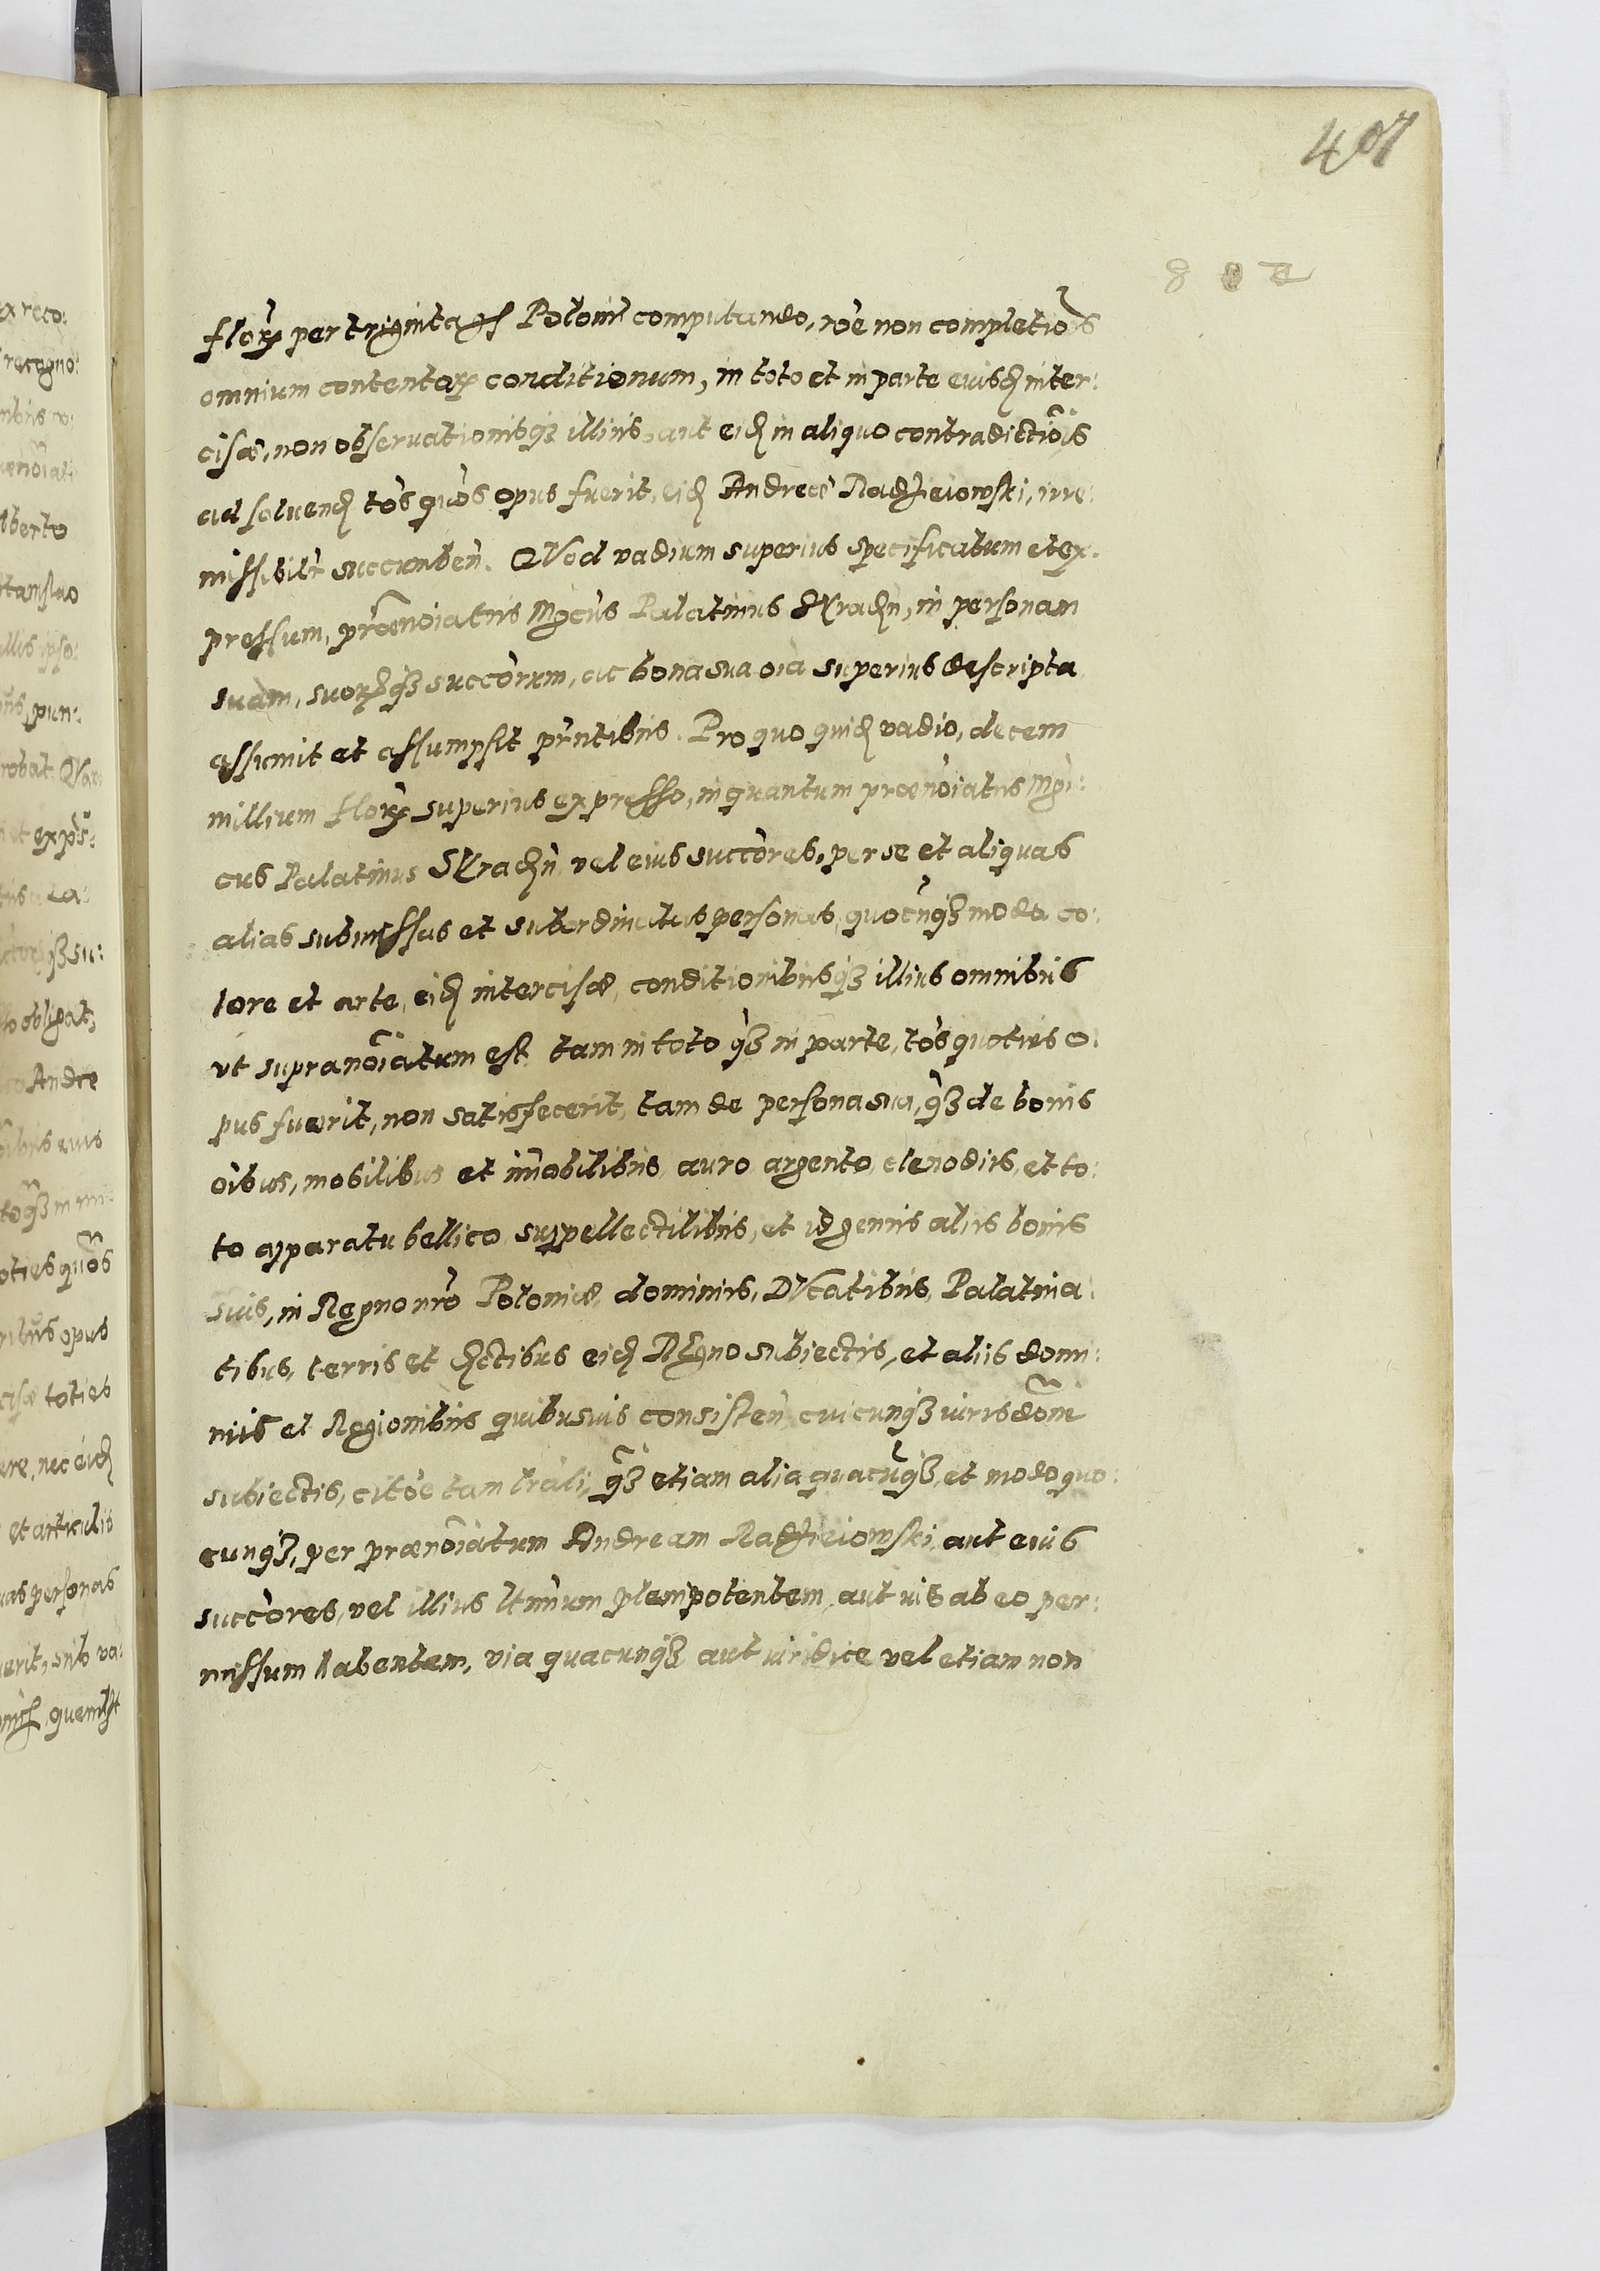 407
florꝝ per triginta gs̃ Polonił computando, rõe non completiõis
omnium contentarꝝ conditionum, in toto et in parte eiusd inter:
cisæ, non obseruationisqȝ illius, aut eid in aliquo contradictiõis
ad soluend tõs quõs opus fuerit, eid Andreæ Radzieiowski, irre:
missibilr succumben̄. QVod vadium superius specificatum et ex:
pressum, prænõiatus Mgcus Palatinus Syradn̄, in personam
suam, suorꝝqȝ succorum, ac bona sua oia superius descripta
assumit et assumpsit prntibus. Pro quo quid vadio, decem
millium florꝝ superius expresso, in quantum prænoiatus Mgi:
cus Palatinus SYradn̄ vel eius succores, per se et aliquas
alias submissas et subordinatas personas, quocunqȝ modo co:
lore et arte, eid intercisæ, conditionibusqȝ illius omnibus
vt supranõiatum est tam in toto qȝ in parte, tos quoties o:
pus fuerit, non satisfecerit, tam de persona sua, qȝ de bonis
oibus, mobilibus et imobilibus auro argento, clenodiis, et to:
to apparatu bellico, suppellectilibus, et id genus aliis bonis
suis, in Regno nro Poloniæ, dominiis, DVcatibus, Palatina:
tibus, terris et dictibus eid REgno subiectis, et aliis domi:
niis et Regionibus quibusuis consisten̄, cuicunqȝ iuris dõni
subiectis, citõe tam trali, qȝ etiam alia quacũqȝ, et modo quo:
cunqȝ, per prænõiatum Andream Radzieiowski, aut eius
succores, vel illius ltmum plenipotentem, aut ius ab eo per:
missum habentem, via quacunqȝ aut iuridice vel etiam non
x reco:
recogno:
Aberto
pun:
robat
et exps:
obligat,
Andre
quõs
opus
toties
nec eid
et articulis
personas